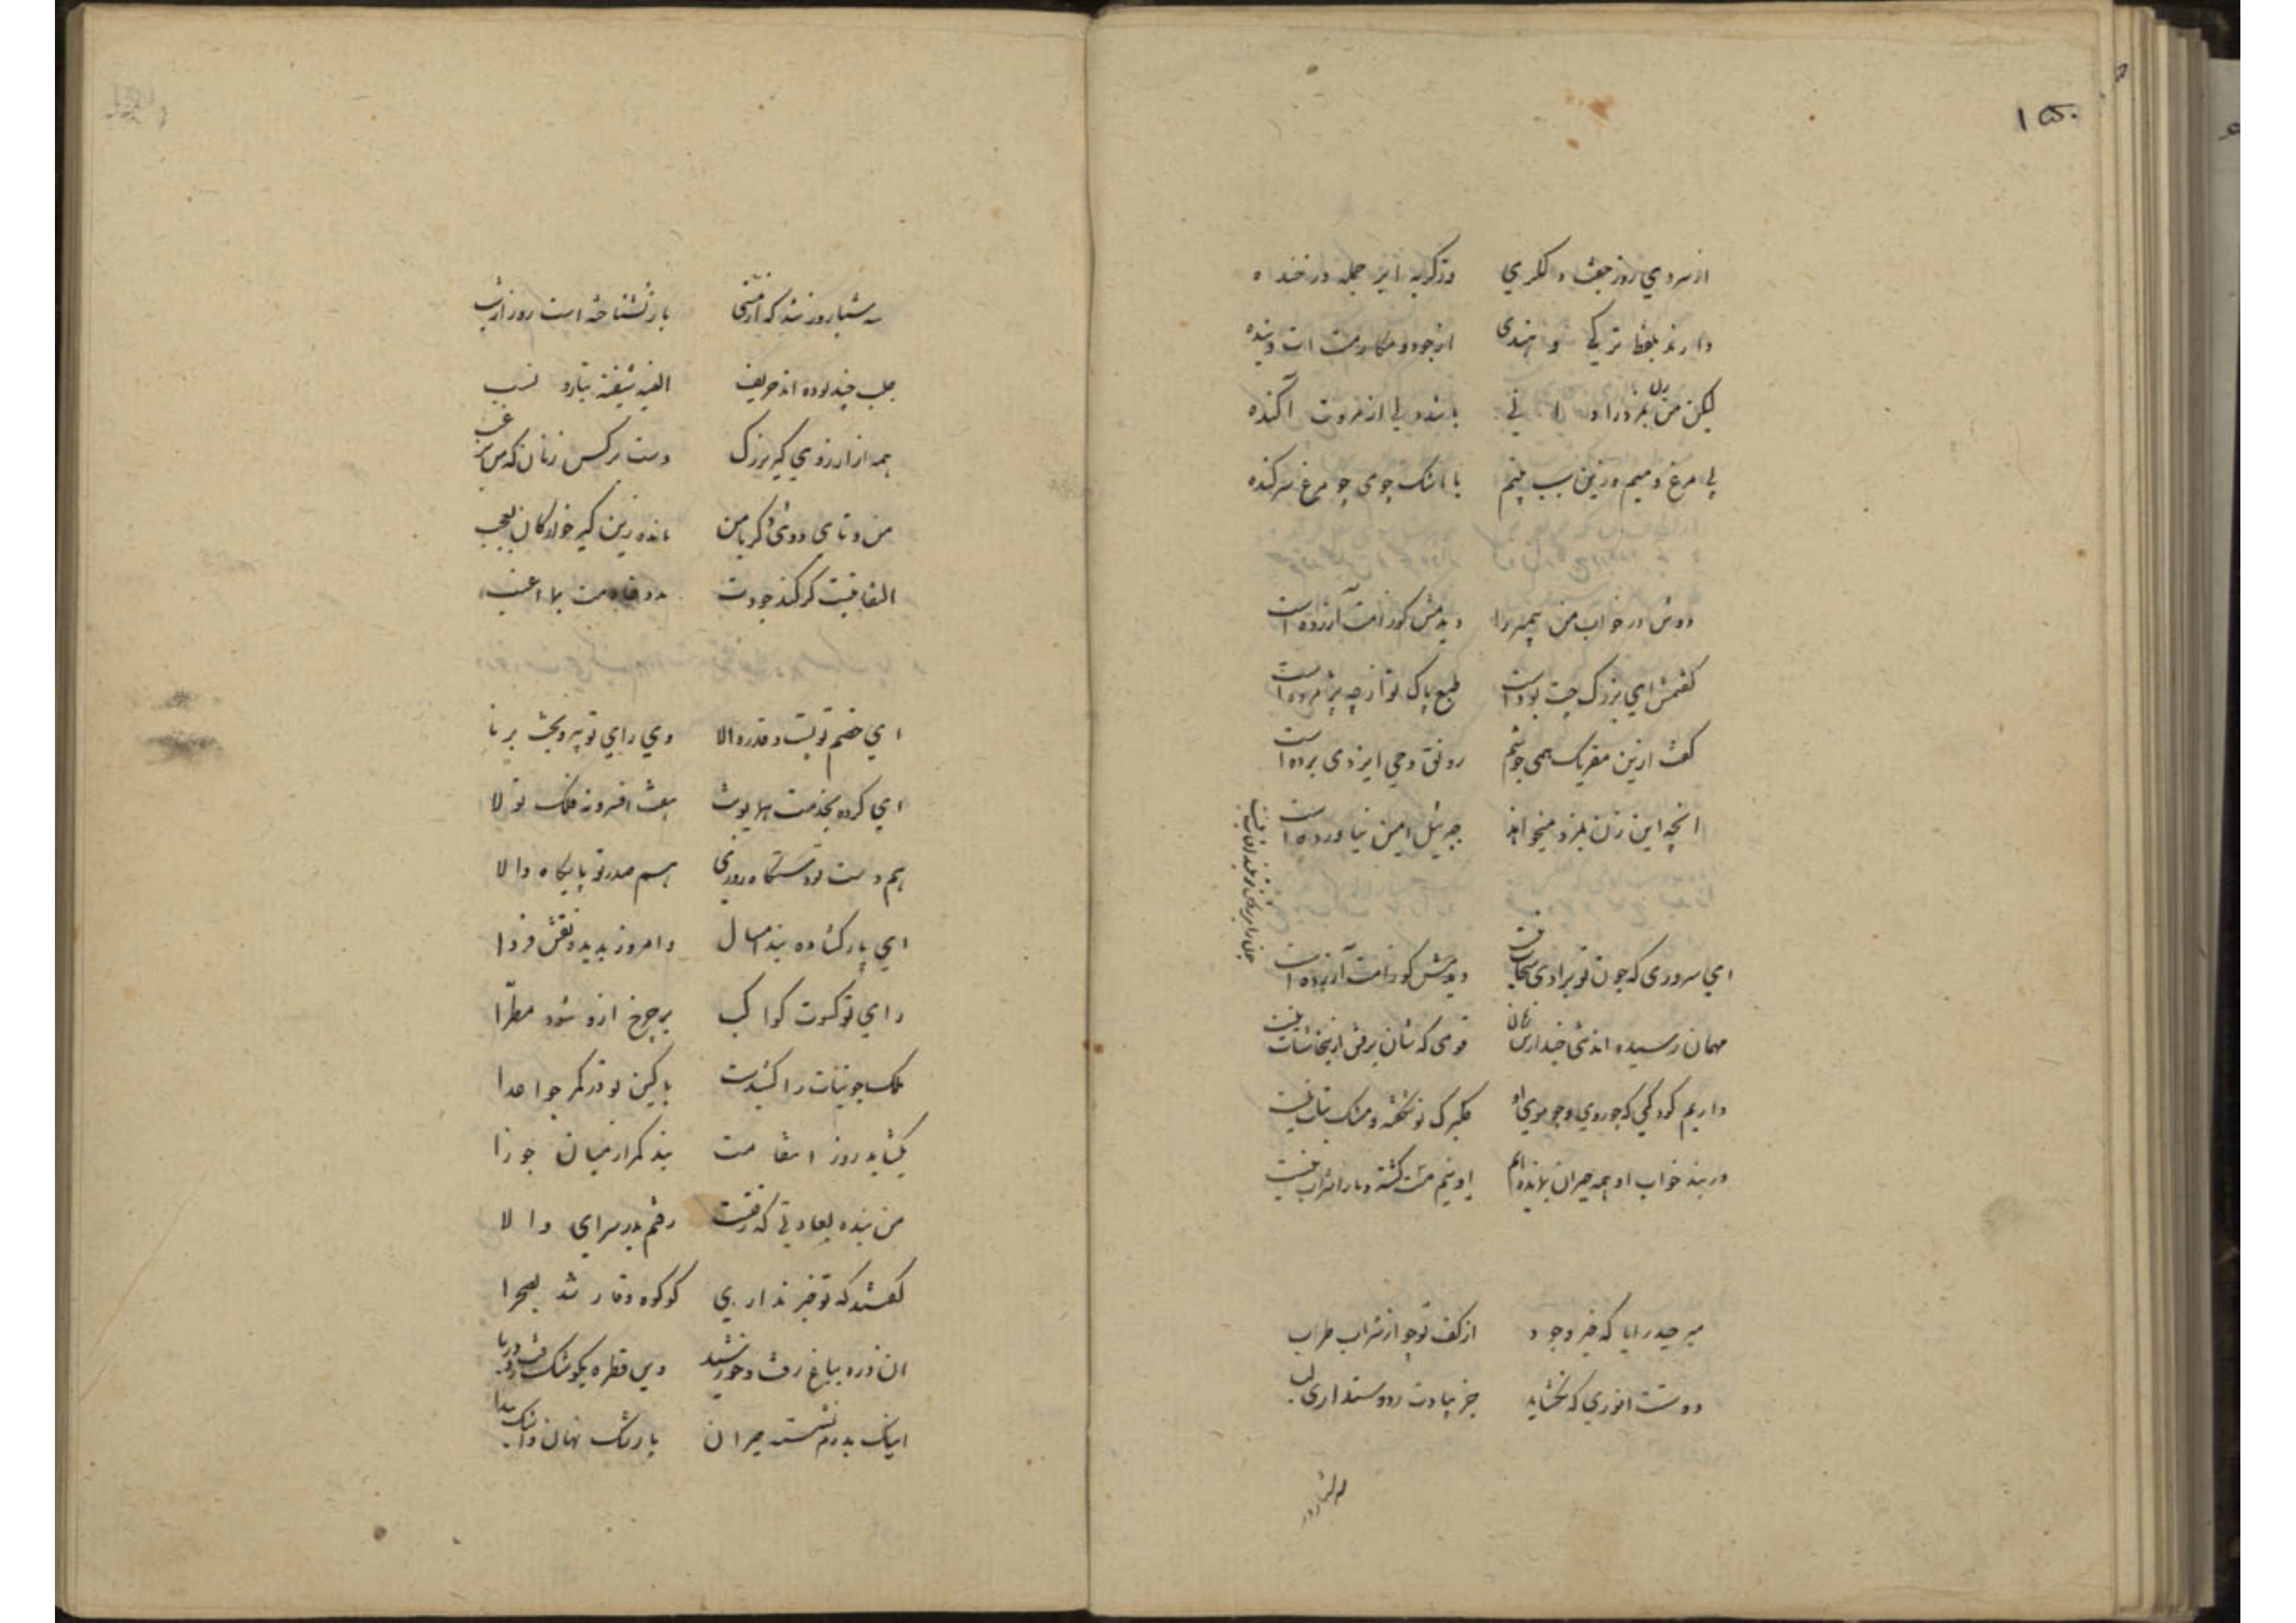 ۱۵۰
از سردی روز جفت و لکری وز کریه ابر جمله در خنده
دارند بلفظ ترکی و هندی از جود و مکارمت است و بنده
لیکن من باشد ولی از مروت آکنده
بی مرغ و میم و زین سبب بینم با اشک چو می چو مرغ سرکنده
دوش در خواب من پیمبر را دیدمش کوز امت آزرده است
کفتمش ای بزرک چت بوداست طبع پاک تو از چه پژمرده است
کفت ازین مقریک همی جوشم رونق وحی ایزدی برده است
انچه این زن بمزد میخواند جبرئیل امین نیاورده است
ای سروری که چون تو برادی دیدمش کوز امت آزرده است
مهمان رسیده اند تنی چند قومی که شان برفتن ازینجا شتاب نیست
داریم کودکی که چو روی و چو موی او کلبرک نو شکفته و مشک بتاب نیست
در بند خواب او همه حیران بمانده ایم او نیم مست کشته و ما را شراب نیست
میر حیدر ایا که خیر وجود از کف تو چو از شراب طرب
دوست انوری که نخشاید جز بیادت در دوستداری لب
سه شبا روز شد که از مستی باز نشناخته است روز از شب
جلب چند بوده اند حریف الفیه شیفته بتازه نسب
همه از ارزوی کیر بزرک دست بر کس زنان که من یرغب
من و تا می دوش دکر با من مانده زین کیر خوارکان بعجب
التفاتیت کر کند جودت بدو قادمت بلا اعنب
ای خصم تو پست و قدر والا وی رای تو پیر و بخت برنا
ای کرده بخدمت همایونت هفت افسرونه فلک تولا
هم دست تو دستکاه روزی هم صدر تو پایکاه والا
ای پار کشاده بند امسال و امروز بدیده نقش فردا
رای تو کسوت کواکب بر چرخ ازو شود مطرا
کلک چو بنات را کشیدست با کین تو در کمر چو اعدا
بکشاید روز انتقامت بند کمر از میان جوزا
من بنده بعادتی که رفتست رفتم بدر سرای والا
کفتند که تو خبر نداری کو کوه وقار شد بصحرا
ان ذره بباغ رفت و خورشید وین قطره بکوشک رفت و دریا
اینک بدرم نشسته حیران با رشک نهان و اشک پیدا